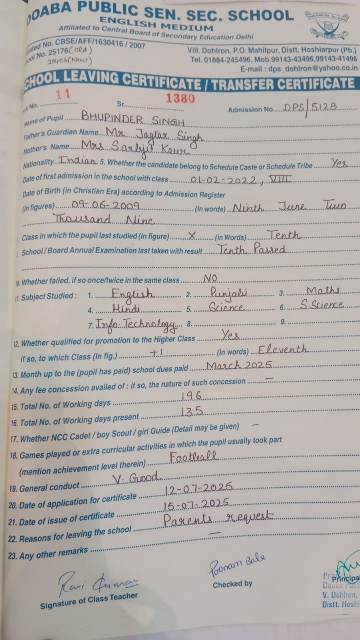 DOABA PUBLIC SEN. SEC. SCHOOL
ENGLISH MEDIUM
Affiliated to Central Board of Secondary Education Delhi
No. CBSE/AFF/1630416 / 2007
Vill. Dohlron, P.O. Mahilpur, Distt. Hoshiarpur (Pb.)
No. 25176 (Old)
Tel. 01884-245496, Mob.99143-43496,99143-41496
(New)
E-mail : dps_dohlron@yahoo.co.in
SCHOOL LEAVING CERTIFICATE / TRANSFER CERTIFICATE
No. 11 Sr. 1380 Admission No. DPS/5128
Name of Pupil BHUPINDER SINGH
Father's Guardian Name Mr. Jagtar Singh
Mother's Name Mrs Sarbjit Kaur
Nationality Indian 5. Whether the candidate belong to Schedule Caste or Schedule Tribe Yes
Date of first admission in the school with class 01-02-2022, VIII
Date of Birth (in Christian Era) according to Admission Register
(in figures) 09-06-2009 (in words) Ninth June Two
Thousand Nine
Class in which the pupil last studied (in figure) X (in Words) Tenth
School / Board Annual Examination last taken with result Tenth Passed
Whether failed, if so once/twice in the same class NO
Subject Studied : 1. English 2. Punjabi 3. Maths
4. Hindi 5. Science 6. S.Science
7. Info. Technology 8. 9.
12. Whether qualified for promotion to the Higher Class Yes
if so, to which Class (in fig.) +1 (in words) Eleventh
13. Month up to the (pupil has paid) school dues paid March 2025
14. Any fee concession availed of : if so, the nature of such concession —
15. Total No. of Working days 196
16. Total No. of Working days present 135
17. Whether NCC Cadet / boy Scout / girl Guide (Detail may be given) —
18. Games played or extra curricular activities in which the pupil usually took part
(mention achievement level therein) Football
19. General conduct V. Good
20. Date of application for certificate 12-07-2025
21. Date of issue of certificate 15-07-2025
22. Reasons for leaving the school Parents request
23. Any other remarks —
Poonam Bala
Signature of Class Teacher
Checked by
Principal
V. Dohlron,
Distt. Hoshi